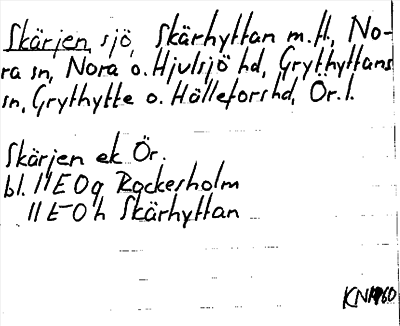 Skärjen, sjö, Skärhyttan m.fl., No-
ra sn, Nora o. Hjulsjö hd, Grythyttans
sn, Grythytte o. Hällefors hd, Ör. l.
Skärjen ek Ör.
bl. 11E0g Rockesholm
11E0h Skärhyttan
KN 1960